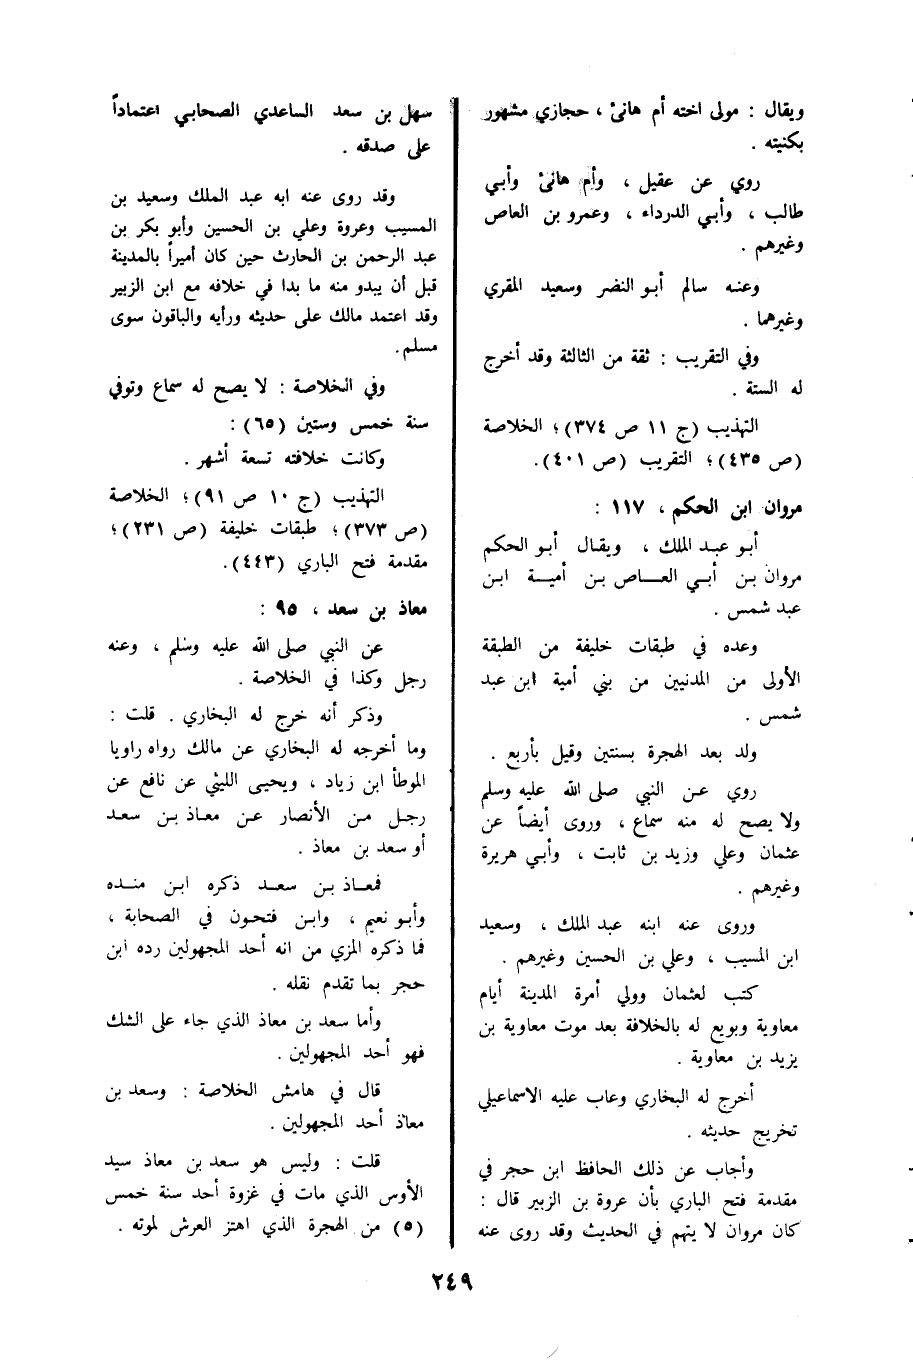 ويقال : مولى اخته أم هانئ ، حجازي مشهور
بكنيته .
روي عن عقيل ، وأم هانئ وأبي
طالب ، وأبي الدرداء ، وعمرو بن العاص
وغيرهم .
وعنه سالم أبو النضر وسعيد المقري
وغيرهما .
وفي التقريب : ثقة من الثالثة وقد أخرج
له الستة .
التهذيب (ج ١١ ص ٣٧٤)؛ الخلاصة
(ص ٤٣٥)؛ التقريب (ص ٤٠١).
مروان ابن الحكم ، ١١٧ :
أبو عبد الملك ، ويقال أبو الحكم
مروان بن أبي العاص بن أمية ابن
عبد شمس .
وعده في طبقات خليفة من الطبقة
الأولى من المدنيين من بني أمية ابن عبد
شمس .
ولد بعد الهجرة بسنتين وقيل بأربع .
روي عن النبي صلى الله عليه وسلم
ولا يصح له منه سماع ، وروى أيضاً عن
عثمان وعلي وزيد بن ثابت ، وأبي هريرة
وغيرهم .
وروى عنه ابنه عبد الملك ، وسعيد
ابن المسيب ، وعلي بن الحسين وغيرهم .
كتب لعثمان وولي أمرة المدينة أيام
معاوية وبويع له بالخلافة بعد موت معاوية بن
يزيد بن معاوية .
أخرج له البخاري وعاب عليه الاسماعيلي
تخريج حديثه .
وأجاب عن ذلك الحافظ ابن حجر في
مقدمة فتح الباري بأن عروة بن الزبير قال :
كان مروان لا يتهم في الحديث وقد روى عنه
سهل بن سعد الساعدي الصحابي اعتماداً
على صدقه .
وقد روى عنه ابه عبد الملك وسعيد بن
المسيب وعروة وعلي بن الحسين وأبو بكر بن
عبد الرحمن بن الحارث حين كان أميراً بالمدينة
قبل أن يبدو منه ما بدا في خلافه مع ابن الزبير
وقد اعتمد مالك على حديثه ورأيه والباقون سوى
مسلم.
وفي الخلاصة : لا يصح له سماع وتوفي
سنة خمس وستين (٦٥) :
وكانت خلافته تسعة أشهر .
التهذيب (ج ١٠ ص ٩١)؛ الخلاصة
(ص ٣٧٣)؛ طبقات خليفة (ص ٢٣١)؛
مقدمة فتح الباري (٤٤٣).
معاذ بن سعد ، ٩٥ :
عن النبي صلى الله عليه وسلم ، وعنه
رجل وكذا في الخلاصة .
وذكر أنه خرج له البخاري . قلت :
وما أخرجه له البخاري عن مالك رواه راويا
الموطأ ابن زياد ، ويحيى الليثي عن نافع عن
رجل من الأنصار عن معاذ بن سعد
أو سعد بن معاذ .
فمعاذ بن سعد ذكره ابن منده
وأبو نعيم ، وابن فتحون في الصحابة ،
فما ذكره المزي من انه أحد المجهولين رده ابن
حجر بما تقدم نقله .
وأما سعد بن معاذ الذي جاء على الشك
فهو أحد المجهولين .
قال في هامش الخلاصة : وسعد بن
معاذ أحد المجهولين .
قلت : وليس هو سعد بن معاذ سيد
الأوس الذي مات في غزوة أحد سنة خمس
(٥) من الهجرة الذي اهتز العرش لموته .
٢٤٩